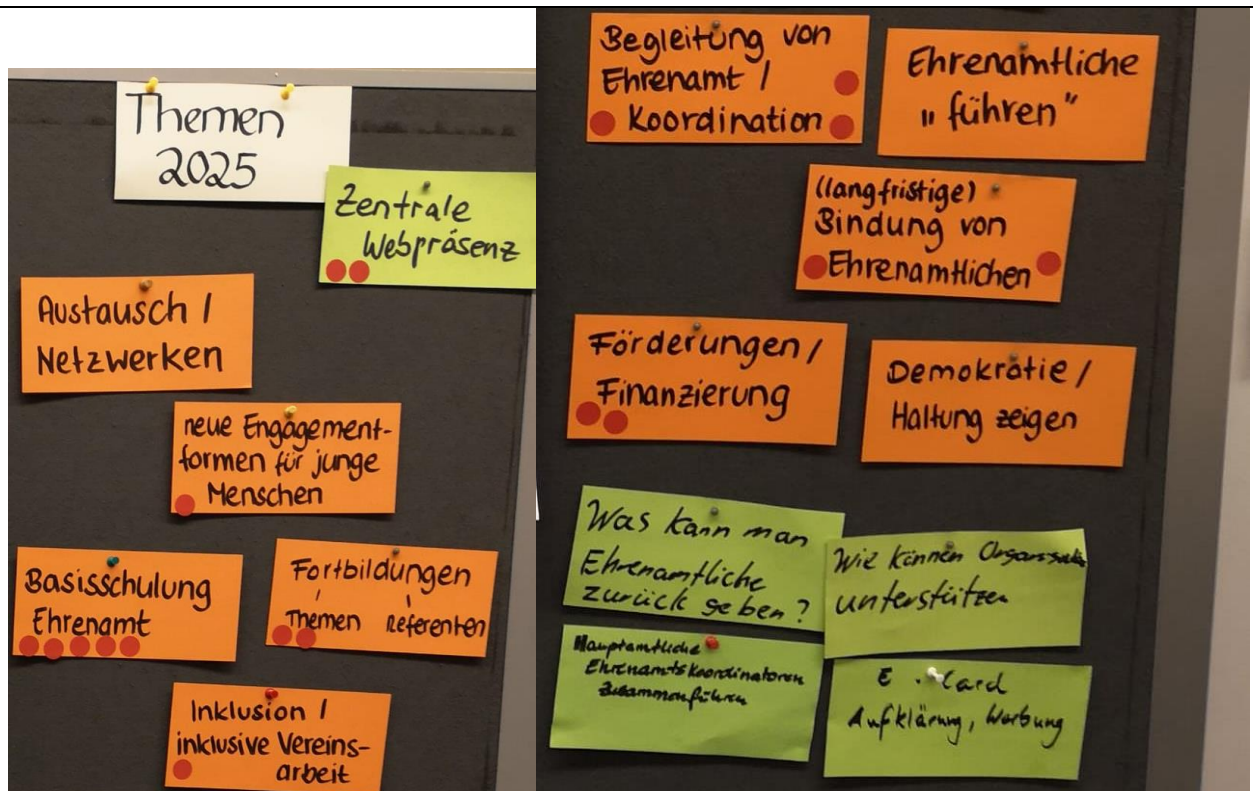 Themen
2025
Zentrale
Webpräsenz
Austausch /
Netzwerken
neue Engagement-
formen für junge
Menschen
Basisschulung
Ehrenamt
Fortbildungen
Themen Referenten
Inklusion /
inklusive Vereins-
arbeit
Begleitung von
Ehrenamt /
Koordination
Ehrenamtliche
„führen"
(langfristige)
Bindung von
Ehrenamtlichen
Förderungen /
Finanzierung
Demokratie /
Haltung zeigen
Was kann man
Ehrenamtliche
zurück geben?
Wie können
unterstützen
Hauptamtliche
Ehrenamtskoordinatoren
zusammenführen
E. Card
Aufklärung, Werbung